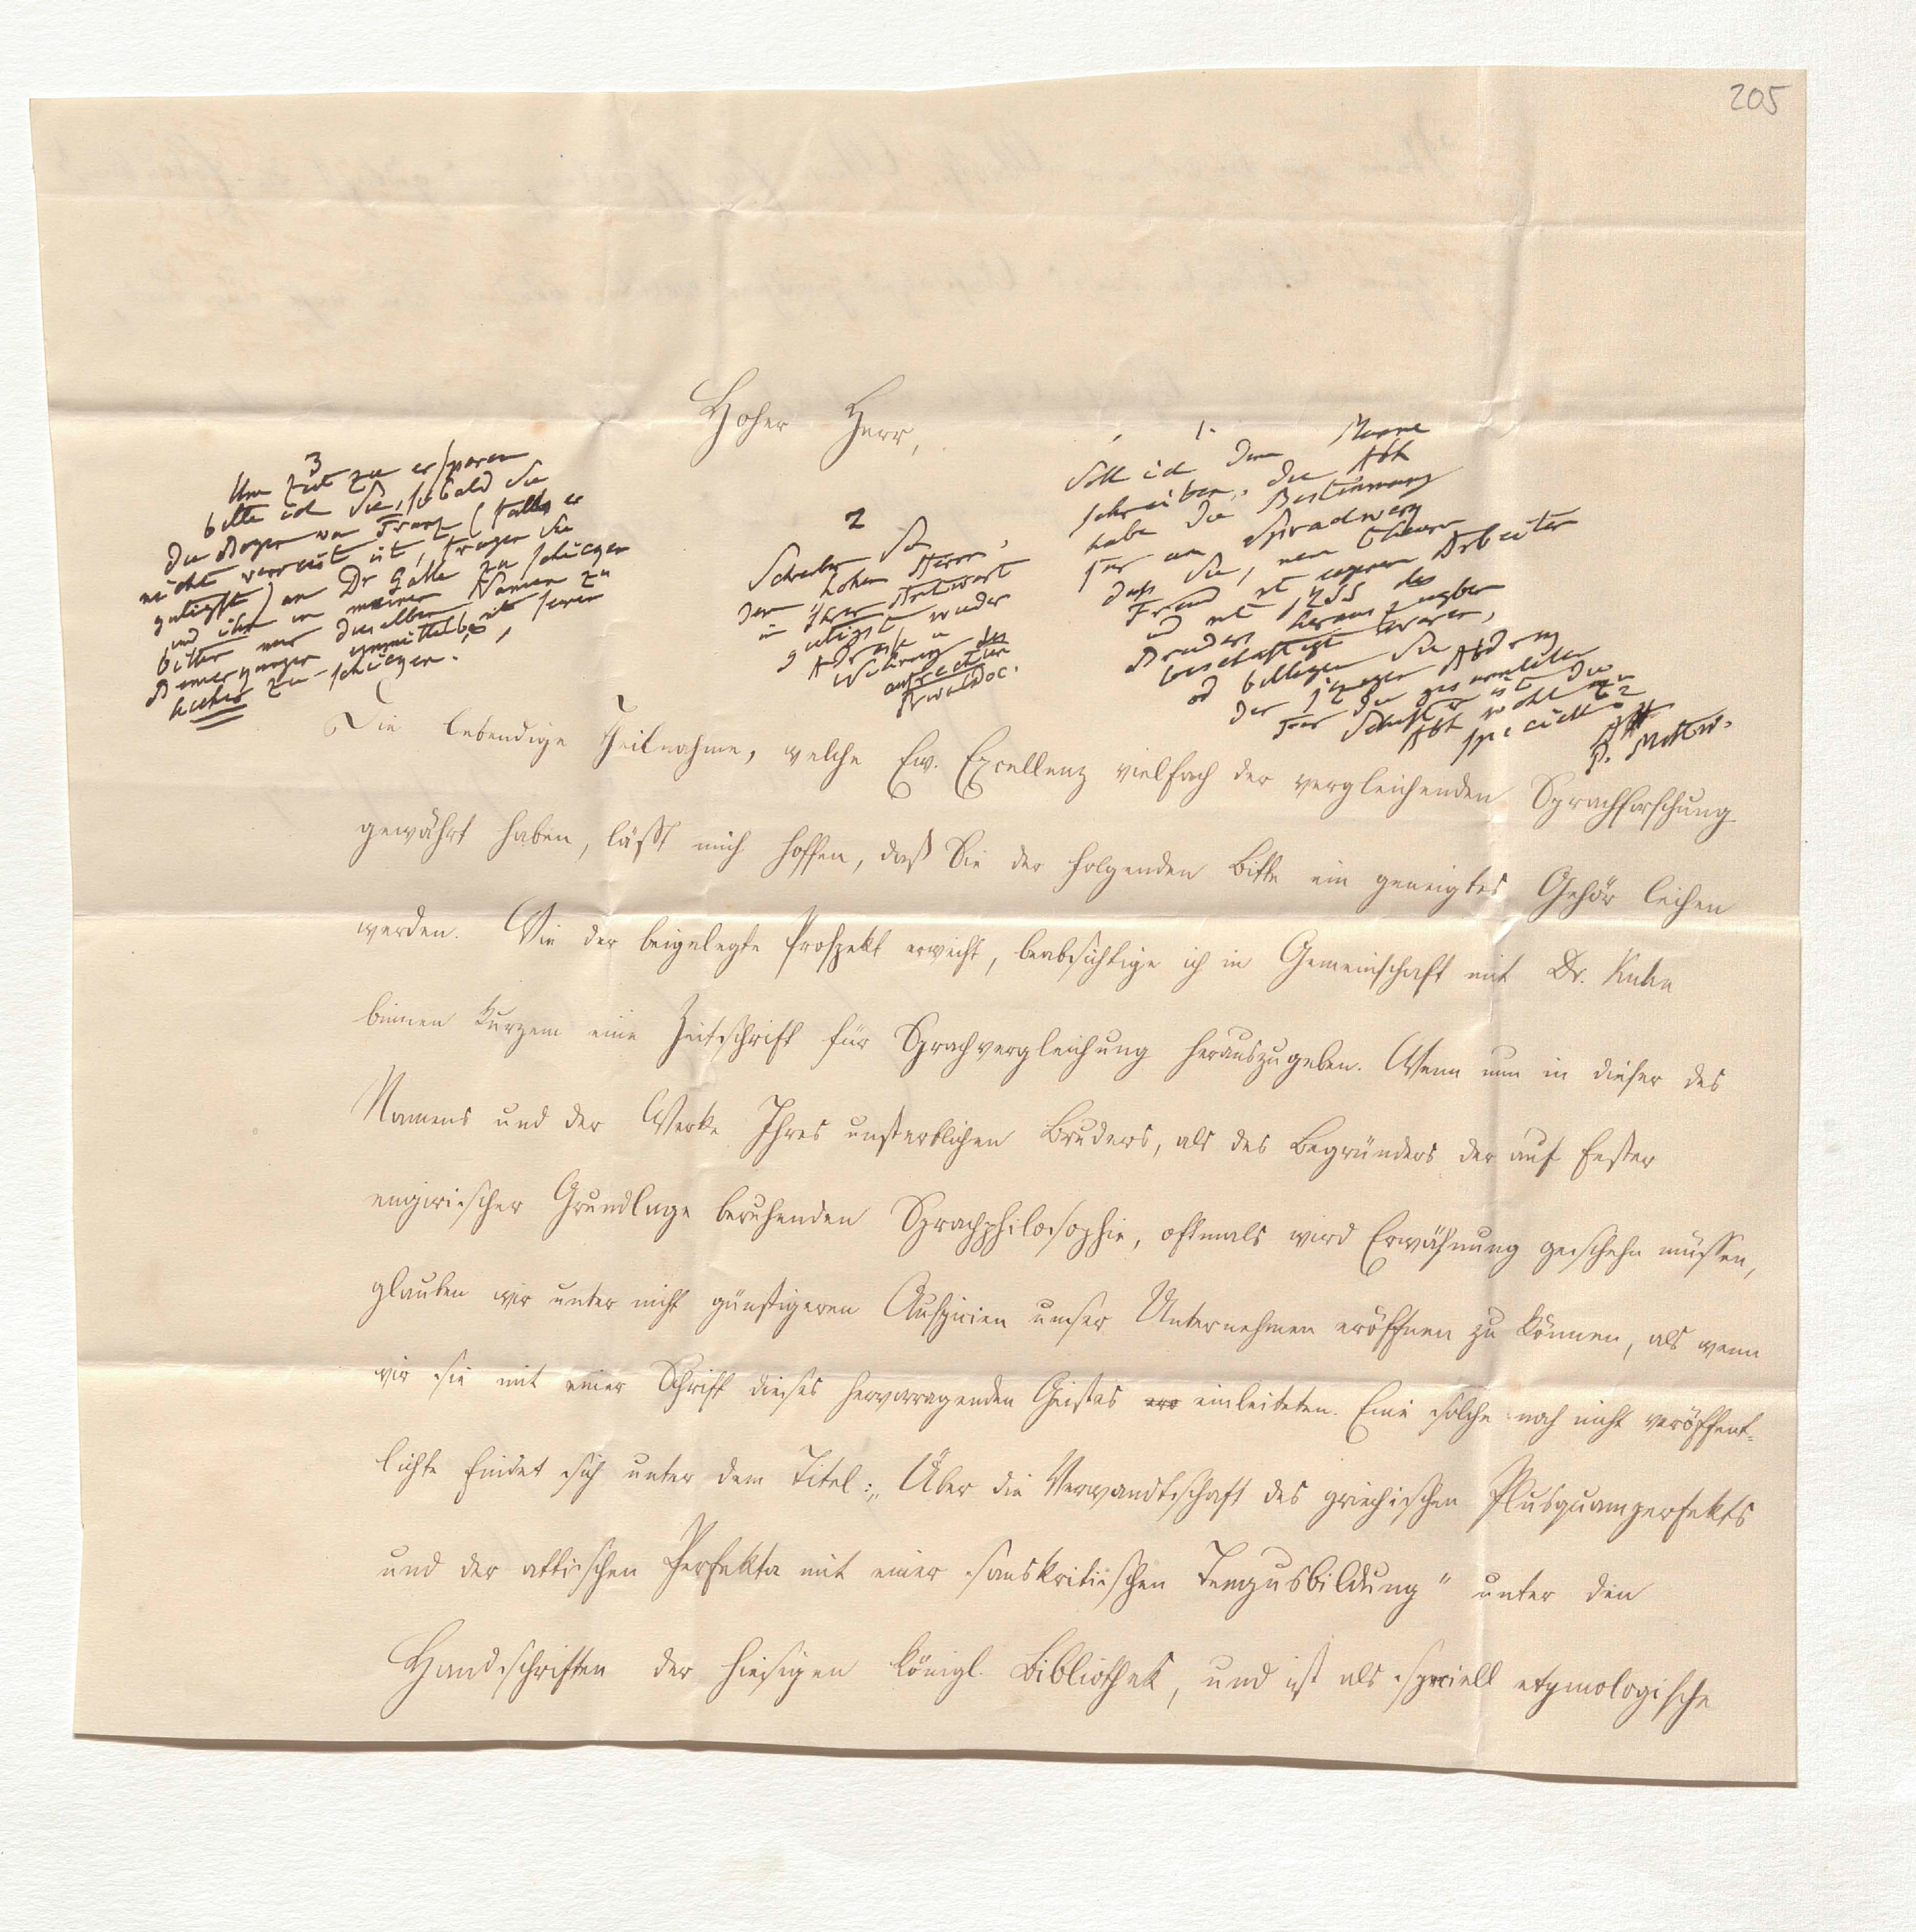 205
Hoher Herr,
1.
Soll ich dem Manne
schreiben, die Abh
habe die Bestimmung
für ein Sprachwerk
daß Sie, mein theurer
Freund mit eigenen Arbeiten
und mit MSS des
Bruders herauszugeben
beschäftigt waren,
od billigen Sie
den Abdruck
Schrift ist die
Abh wohl zu
speciell?
2
Schreiben Sie
den hohen Herrn,
in Ihrer Antwort
gütigst wieder
Adresse u
Wohnung des
3
Um Zeit zu ersparen
bitte ich Sie, sobald Sie
die Bogen von Franz (falls er
nicht verreist ist, fragen Sie
gütigst) an Dr Galle zu schicken
und ihn in meinem Namen zu
bitten mir dieselben mit seinen
Bemerkungen unmittelbar
hieher zu schicken.
Die lebendige Theilnahme, welche Ew. Excellenz vielfach der vergleichenden Sprachforschung
gewährt haben, läßt mich hoffen, daß Sie der folgenden Bitte ein geneigtes Gehör leihen
werden. Wie der beigelegte Prospekt erweist, beabsichtige ich in Gemeinschaft mit Dr. Kuhn
binnen Kurzem eine Zeitschrift für Sprachvergleichung herauszugeben. Wenn nun in dieser des
Namens und der Werke Ihres unsterblichen Bruders, als des Begründers der auf fester
empirischer Grundlage beruhenden Sprachphilosophie, oftmals wird Erwähnung geschehn müssen,
glauben wir unter nicht günstigeren Auspicien unser Unternehmen eröffnen zu können, als wenn
wir sie mit einer Schrift dieses hervorragenden Geistes einleiteten. Eine solche noch nicht veröffent-
lichte findet sich unter dem Titel: „Über die Verwandtschaft des griechischen Plusquamperfekts
und der attischen Perfekta mit einer sanskritischen Tempusbildung" unter den
Handschriften der hiesigen königl. Bibliothek, und ist als speciell etymologische